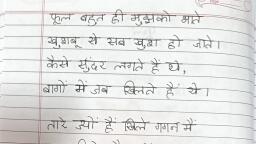 फूल बहुत ही मुझको भाते
खुशबू से सब खुश हो जाते।
कैसे सुंदर लगते हैं ये,
बागों में जब खिलते हैं ये।
तारे ज्यों हैं खिले गगन में